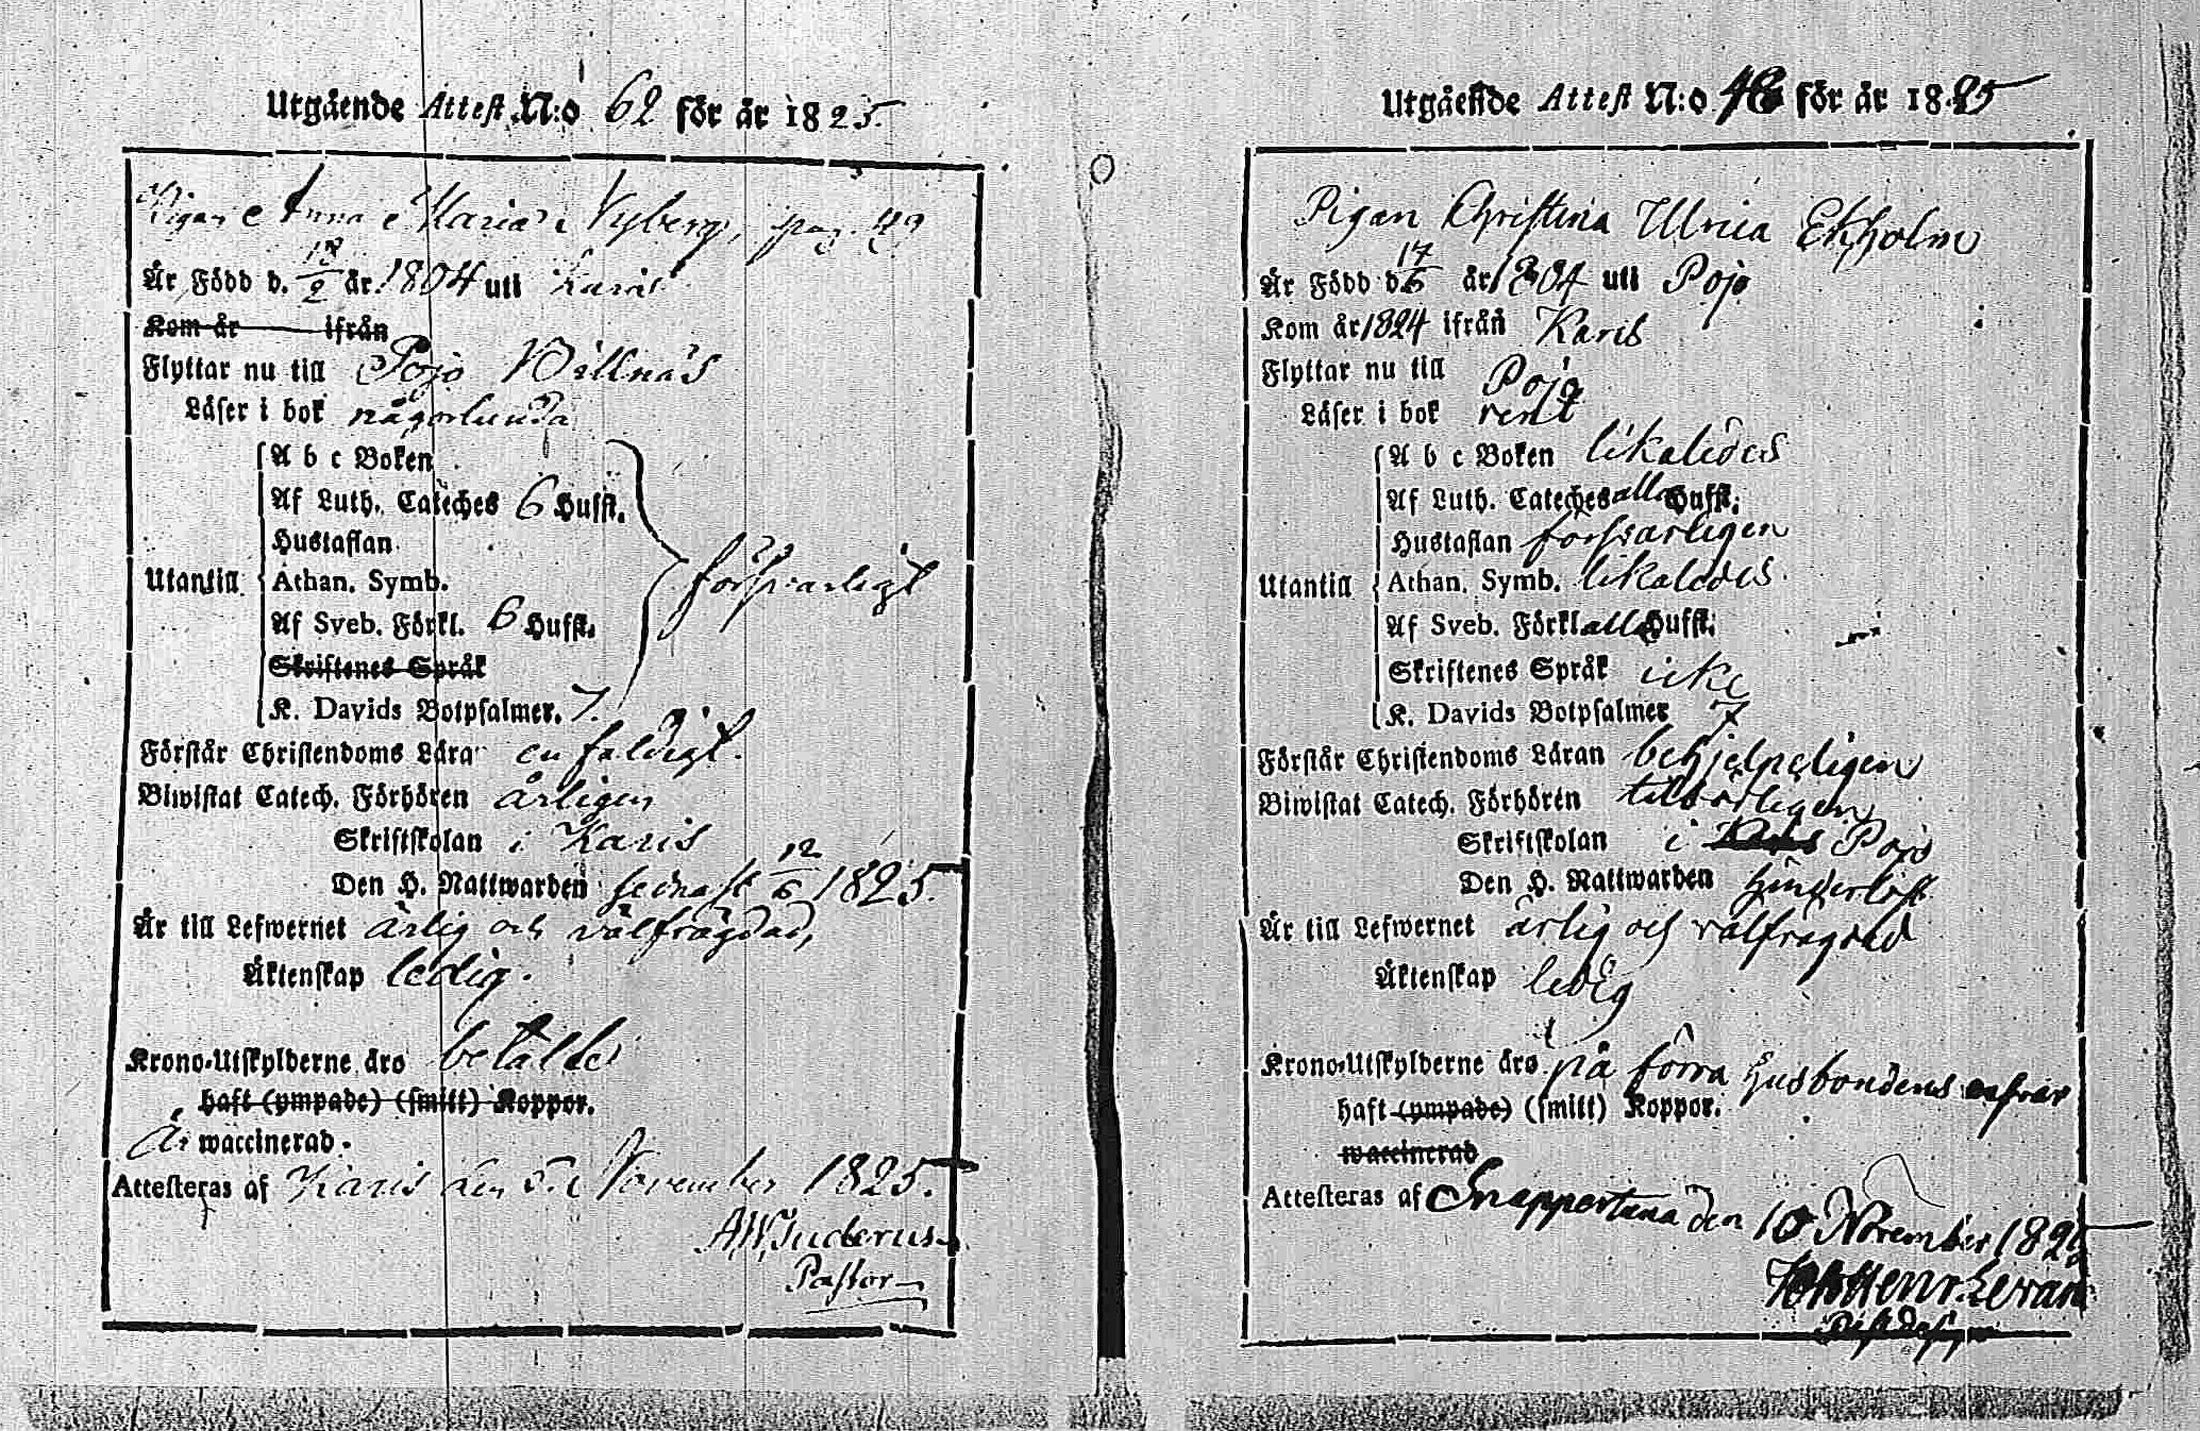 Utgående Attest N:o 62 för år 1825.
Pigan Anna Maria Nyberg, pag. 49
Är Född d. 18/2 år 1804 uti Karis
Kom år ifrån
Flyttar nu till Pojo Willnäs
Läser i bok någorlunda
A b c Boken
Af Luth. Cateches 6 Hufst.
Hustaflan
Utantill Athan. Symb. försvarligt
Af Sveb. Förkl. 6 Hufst.
Skriftenes Språk
K. Davids Botpsalmer. 7.
Förstår Christendoms Lära enfaldigt.
Biwistat Catech. Förhören årligen
Skriftskolan i Karis
Den H. Nattwarden sednast 12/6 1825.
Är till Lefwernet ärlig och välfrägdad,
Äktenskap ledig.
Krono-Utskylderne äro betalde
haft (ympade) (smitt) Koppor.
Är waccinerad.
Attesteras af Karis den 5. November 1825.
Pastor
Utgående Attest N:o 48 för år 1825
Pigan Christina Ulrica Ekholm
Är Född d. 17/6 år 1804 uti Pojo
Kom år 1824 ifrån Karis
Flyttar nu till Pojo
Läser i bok rent
A b c Boken likaledes
Af Luth. Cateches alla Hufst.
Hustaflan försvarligen
Utantill Athan. Symb. likaledes
Af Sveb. Förkl. alla Hufst.
Skriftenes Språk icke
K. Davids Botpsalmer 7
Förstår Christendoms Läran behjelpeligen
Biwistat Catech. Förhören tilbörligen
Skriftskolan i Karis Pojo
Den H. Nattwarden hinderlöst
Är till Lefwernet ärlig och välfrägdad
Äktenskap ledig
Krono-Utskylderne äro på förra Husbondens ansvar
haft (ympade) (smitt) Koppor.
waccinerad
Attesteras af Snappertuna den 10 November 1825